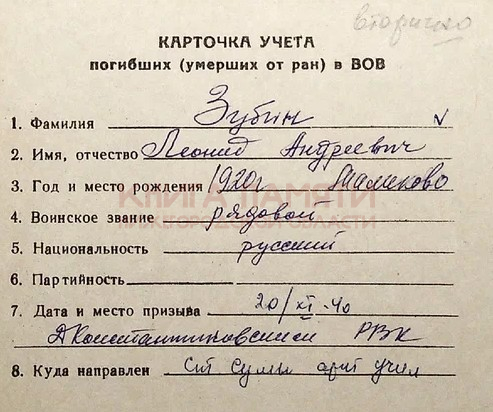 вторично
КАРТОЧКА УЧЕТА
погибших (умерших от ран) в ВОВ
1. Фамилия Зубин
2. Имя, отчество Леонид Андреевич
3. Год и место рождения 1920г Маликово
КНИГА ПАМЯТИ
НИЖЕГОРОДСКОЙ ОБЛАСТИ
4. Воинское звание рядовой
5. Национальность русский
6. Партийность
7. Дата и место призыва 20/XI-40
Д Константиновским РВК
8. Куда направлен Ст Сумы арт учил